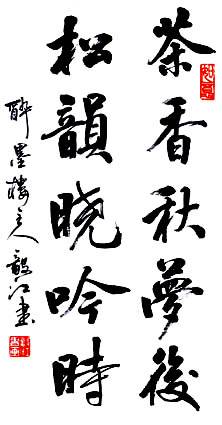 茶香秋夢後
松韻晓吟時
醉墨樓主人毅江書